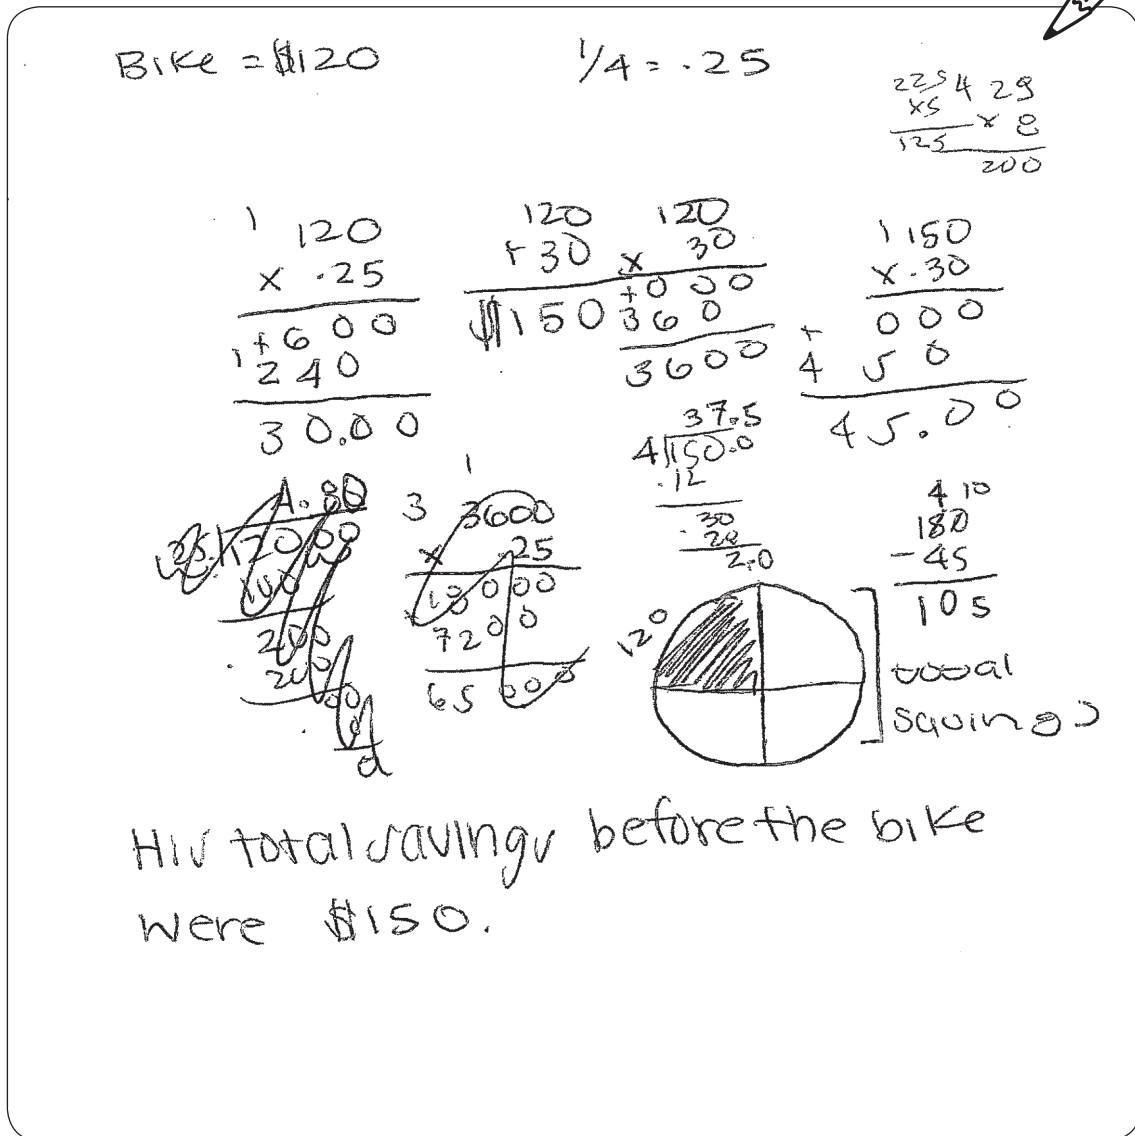 Bike = $120
1/4 = .25
225
x5
125
4 29
x 8
200
1 120
x .25
+600
1 240
30.00
120
+ 30
$150
120
x 30
+000
360
3600
1 150
x .30
000
+
4 5 0
45.00
37.5
4 150.0
.12
30
2.0
3 3600
1
x .25
7200
65000
4 10
180
- 45
105
120
total
savings
His total savings before the bike
were $150.